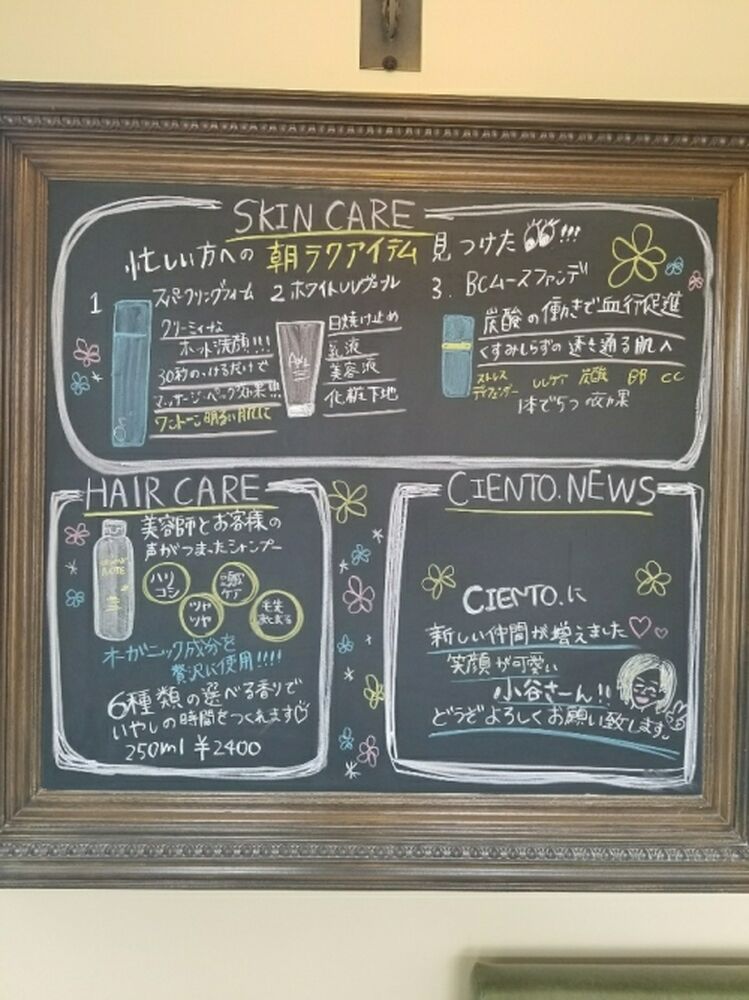 SKIN CARE
忙しい方への 朝ラクアイテム 見つけた !!!
1 スパークリングフォーム
クリーミィな
ホット洗顔!!!
30秒のっけるだけで
マッサージ・パック効果!!!
ワントーン明るい肌に
2 ホワイトUVヴェール
日焼け止め
乳液
美容液
化粧下地
3. BCムースファンデ
炭酸の働きで血行促進
くすみしらずの透き通る肌へ
ストレス
ディフェンダー UVケア 炭酸 BB CC
1本で5つの効果
HAIR CARE
美容師とお客様の
声がつまったシャンプー
ハリ
コシ
ツヤ
ツヤ
頭皮
ケア
毛先
まとまる
オーガニック成分を
贅沢に使用!!!!
6種類の選べる香りで
いやしの時間をつくれます♡
250ml ¥2400
CIENTO.NEWS
CIENTO.に
新しい仲間が増えました♡♡
笑顔が可愛い
小谷さーん!!
どうぞよろしくお願い致します。